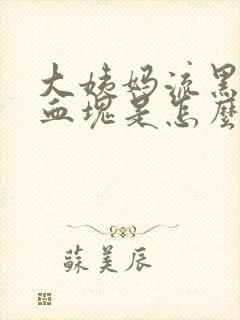 大姨妈流黑
血塊是怎麼
蘇美辰